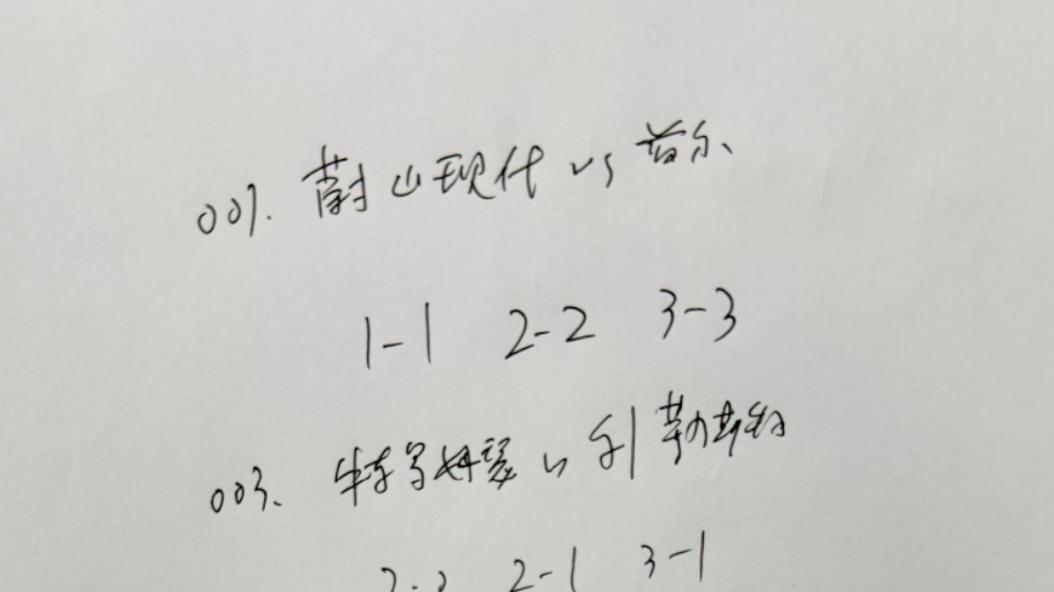 001. 蔚山现代 vs 首尔
1-1 2-2 3-3
003. 特罗姆瑟 vs 利勒斯特
2-1 3-1